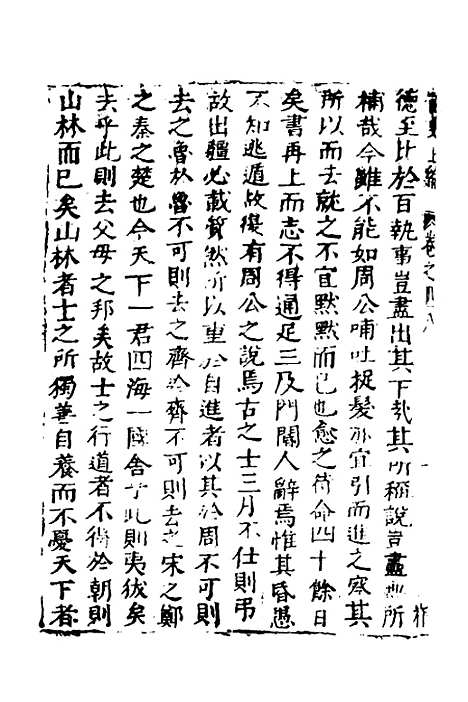 上編 卷之四
德至比於百執事豈盡出其下哉其所稱說豈盡無所
補哉今雖不能如周公哺吐捉髮亦宜引而進之察其
所以而去就之不宜默默而已也愈之待命四十餘日
矣書再上而志不得通足三及門閽人辭焉惟其昏愚
不知逃遁故復有周公之說焉古之士三月不仕則弔
故出疆必載質然所以重於自進者以其於周不可則
去之魯於魯不可則去之齊於齊不可則去之宋之鄭
之秦之楚也今天下一君四海一國舍乎此則夷狄矣
去乎此則去父母之邦矣故士之行道者不得於朝則
山林而已矣山林者士之所獨善自養而不憂天下者